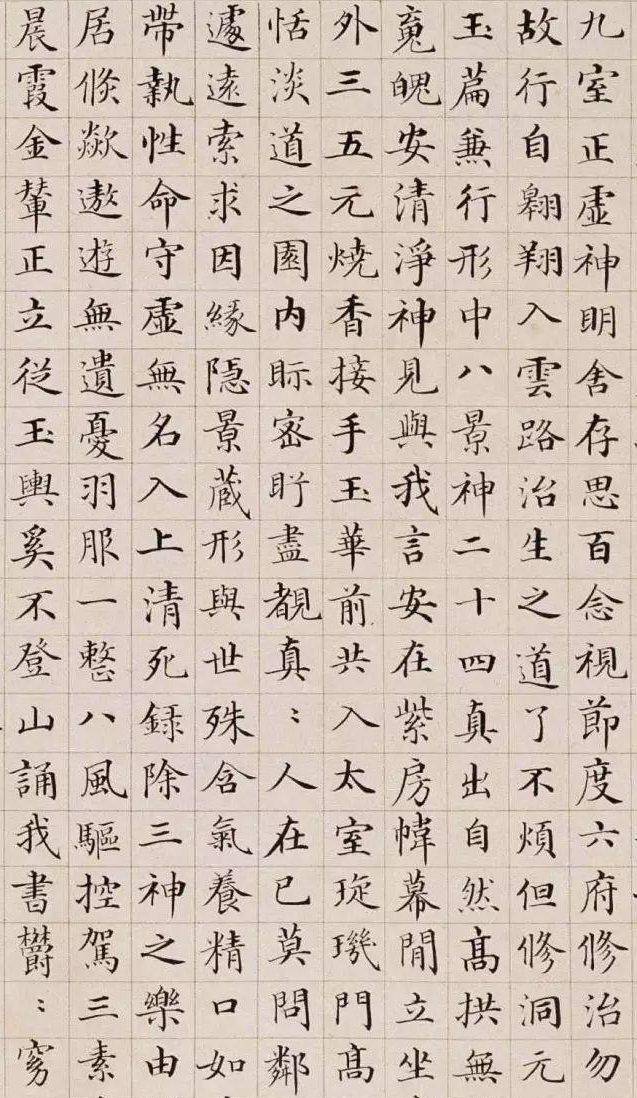 九室正虛神眀舍存思百念視節度六府修治勿
故行自翱翔入雲路治生之道了不煩但修洞元
玉篇兼行形中八景神二十四真出自然髙拱無
䰟魄安清淨神見與我言安在紫房幃幕閒立坐
外三五元燒香接手玉華前共入太室琁璣門髙
恬淡道之園內眎宻盱盡覩真〻人在已莫問鄰
遽遠索求因緣隱景藏形與世殊含氣養精口如
帶執性命守虛無名入上清死録除三神之樂由
居倐歘遨遊無遺憂羽服一整八風驅控駕三素
晨霞金輦正立從玉輿奚不登山誦我書欝〻窈